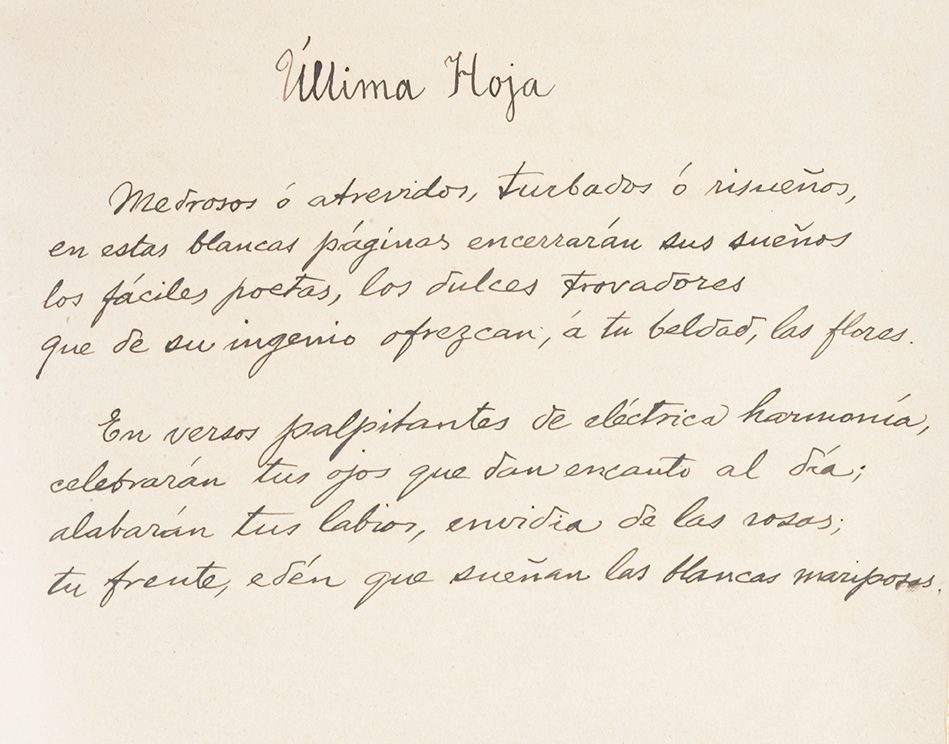 Última Hoja
Medrosos ó atrevidos, turbados ó risueños,
en estas blancas páginas encerrarán sus sueños
los fáciles poetas, los dulces trovadores
que de su ingenio ofrezcan, á tu beldad, las flores.
En versos palpitantes de eléctrica harmonía,
celebrarán tus ojos que dan encanto al día;
alabarán tus labios, envidia de las rosas;
tu frente, edén que sueñan las blancas mariposas.